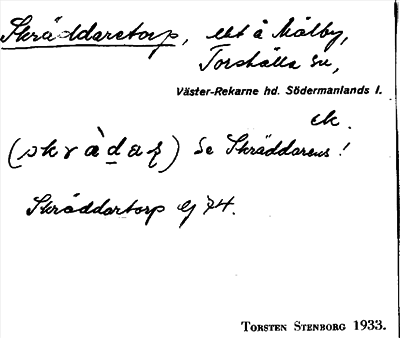 Skräddaretorp, lht å Mälby,
Torshälla sn,
Väster-Rekarne hd. Södermanlands l.
ek.
Se Skräddarens!
Skräddartorp Ej 74.
TORSTEN STENBORG 1933.